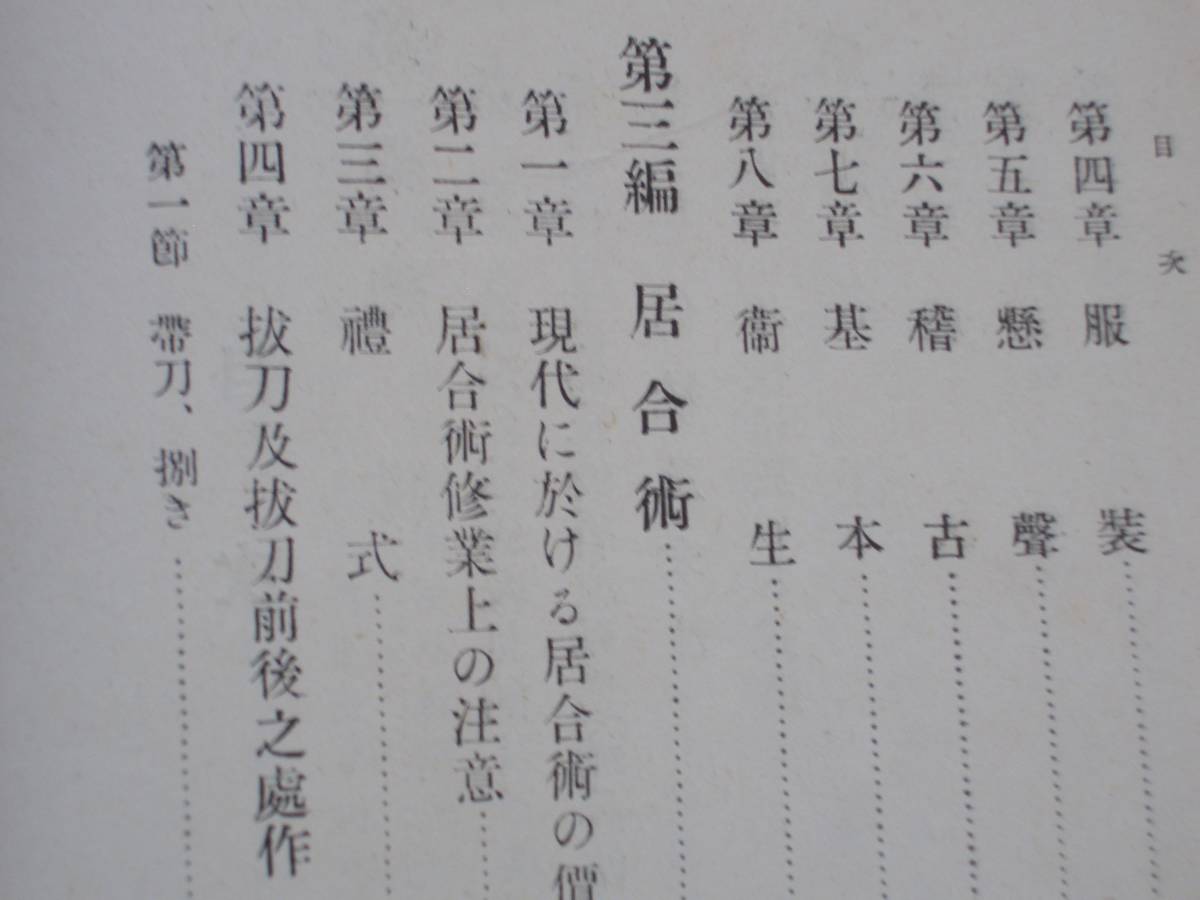 目次
第四章 服裝
第五章 懸聲
第六章 稽古
第七章 基本
第八章 衞生
第三編 居合術
第一章 現代に於ける居合術の價
第二章 居合術修業上の注意
第三章 禮式
第四章 拔刀及拔刀前後之處作
第一節 帶刀、捌き